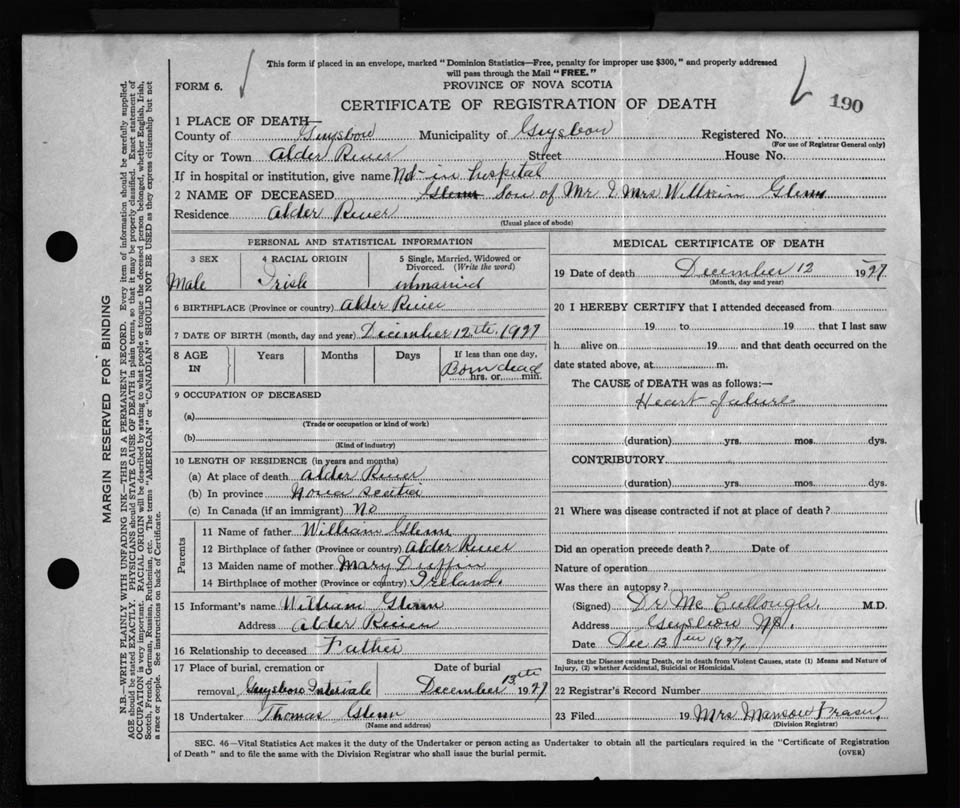 This form if placed in an envelope, marked "Dominion Statistics—Free, penalty for improper use $300," and properly addressed
will pass through the Mail "FREE."
FORM 6.
PROVINCE OF NOVA SCOTIA
CERTIFICATE OF REGISTRATION OF DEATH
190
1 PLACE OF DEATH—
County of Guysboro Municipality of Guysboro Registered No.
(For use of Registrar General only)
City or Town Alder River Street House No.
If in hospital or institution, give name Not in hospital
2 NAME OF DECEASED Glenn Son of Mr & Mrs William Glenn
Residence Alder River
(Usual place of abode)
PERSONAL AND STATISTICAL INFORMATION
3 SEX 4 RACIAL ORIGIN 5 Single, Married, Widowed or
Divorced. (Write the word)
Male Irish unmarried
6 BIRTHPLACE (Province or country) Alder River
7 DATE OF BIRTH (month, day and year) December 12th, 1927
8 AGE IN Years Months Days If less than one day,
Born dead
hrs. or min.
9 OCCUPATION OF DECEASED
(a)
(Trade or occupation or kind of work)
(b)
(Kind of industry)
10 LENGTH OF RESIDENCE (in years and months)
(a) At place of death Alder River
(b) In province Nova Scotia
(c) In Canada (if an immigrant) No
Parents
11 Name of father William Glenn
12 Birthplace of father (Province or country) Alder River
13 Maiden name of mother Mary Duffin
14 Birthplace of mother (Province or country) Ireland.
15 Informant's name William Glenn
Address Alder River
16 Relationship to deceased Father
17 Place of burial, cremation or Date of burial
removal Guysboro Intervale December 13th 1927
18 Undertaker Thomas Glenn
(Name and address)
MEDICAL CERTIFICATE OF DEATH
19 Date of death December 12 1927
(Month, day and year)
20 I HEREBY CERTIFY that I attended deceased from
19 to 19 that I last saw
h alive on 19 and that death occurred on the
date stated above, at m.
The CAUSE of DEATH was as follows:—
Heart failure
(duration) yrs. mos. dys.
CONTRIBUTORY
(duration) yrs. mos. dys.
21 Where was disease contracted if not at place of death?
Did an operation precede death? Date of
Nature of operation
Was there an autopsy?
(Signed) Dr McCullough. M.D.
Address Guysboro NS.
Date Dec 13 1927,
State the Disease causing Death, or in death from Violent Causes, state (1) Means and Nature of
Injury, (2) whether Accidental, Suicidal or Homicidal.
22 Registrar's Record Number
23 Filed 19 Mrs Manson Fraser
(Division Registrar)
SEC. 46—Vital Statistics Act makes it the duty of the Undertaker or person acting as Undertaker to obtain all the particulars required in the "Certificate of Registration
of Death" and to file the same with the Division Registrar who shall issue the burial permit.
(OVER)
MARGIN RESERVED FOR BINDING
N.B.—WRITE PLAINLY WITH UNFADING INK—THIS IS A PERMANENT RECORD. Every item of information should be carefully supplied.
AGE should be stated EXACTLY. PHYSICIANS should STATE CAUSE OF DEATH in plain terms, so that it may be properly classified. Exact statement of
OCCUPATION is very important. RACIAL ORIGIN will be described by stating to what people or tongue the deceased person belonged, whether English, Irish,
Scotch, French, German, Russian, Ruthenian, etc. The terms "AMERICAN" or "CANADIAN" SHOULD NOT BE USED as they express citizenship but not
a race or people. See instructions on back of Certificate.